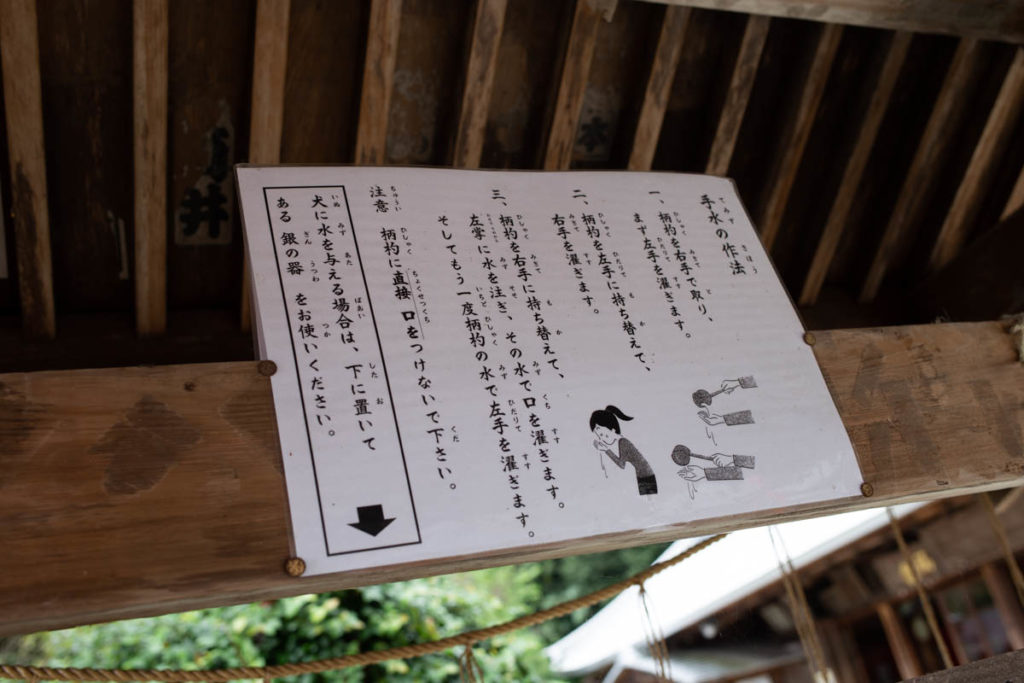 手水の作法
一、柄杓を右手で取り、
まず左手を濯ぎます。
二、柄杓を左手に持ち替えて、
右手を濯ぎます。
三、柄杓を右手に持ち替えて、
左掌に水を注ぎ、その水で口を濯ぎます。
そしてもう一度柄杓の水で左手を濯ぎます。
注意 柄杓に直接口をつけないで下さい。
犬に水を与える場合は、下に置いて
ある 銀の器 をお使いください。
井